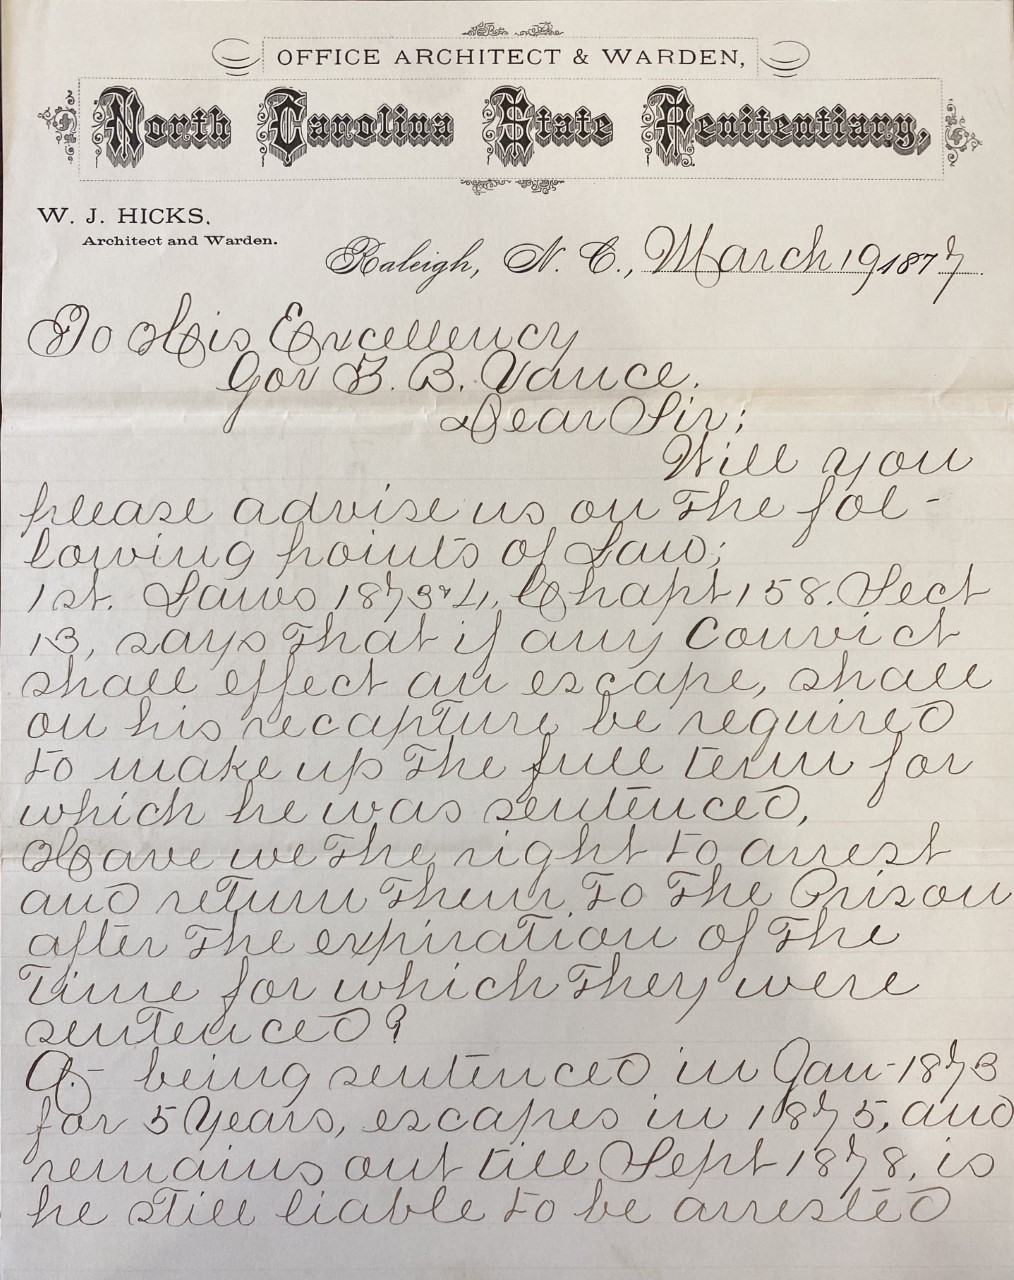 OFFICE ARCHITECT & WARDEN,
North Carolina State Penitentiary,
W. J. HICKS,
Architect and Warden.
Raleigh, N. C., March 19 1877
To His Excellency
Gov Z. B. Vance.
Dear Sir;
Will you
please advise us on the fol-
lowing points of Law;
1st. Laws 1873&4, Chapt 158. Sect
13, says that if any Convict
shall effect an escape, shall
on his recapture be required
to make up the full term for
which he was sentenced,
Have we the right to arrest
and return them to the Prison
after the expiration of the
Time for which they were
sentenced?
A.- being sentenced in Jan- 1873
for 5 Years, escapes in 1875, and
remains out till Sept 1878, is
he still liable to be arrested